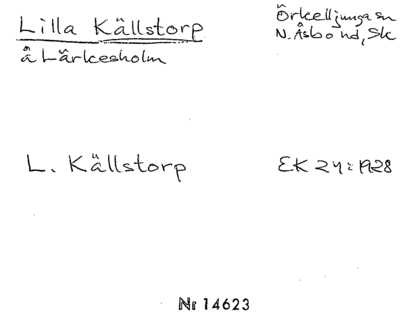 Lilla Källstorp
å Lärkesholm
Örkelljunga sn
N. Åsbo hd, Sk
L. Källstorp
EK 24:1928
Nr 14623